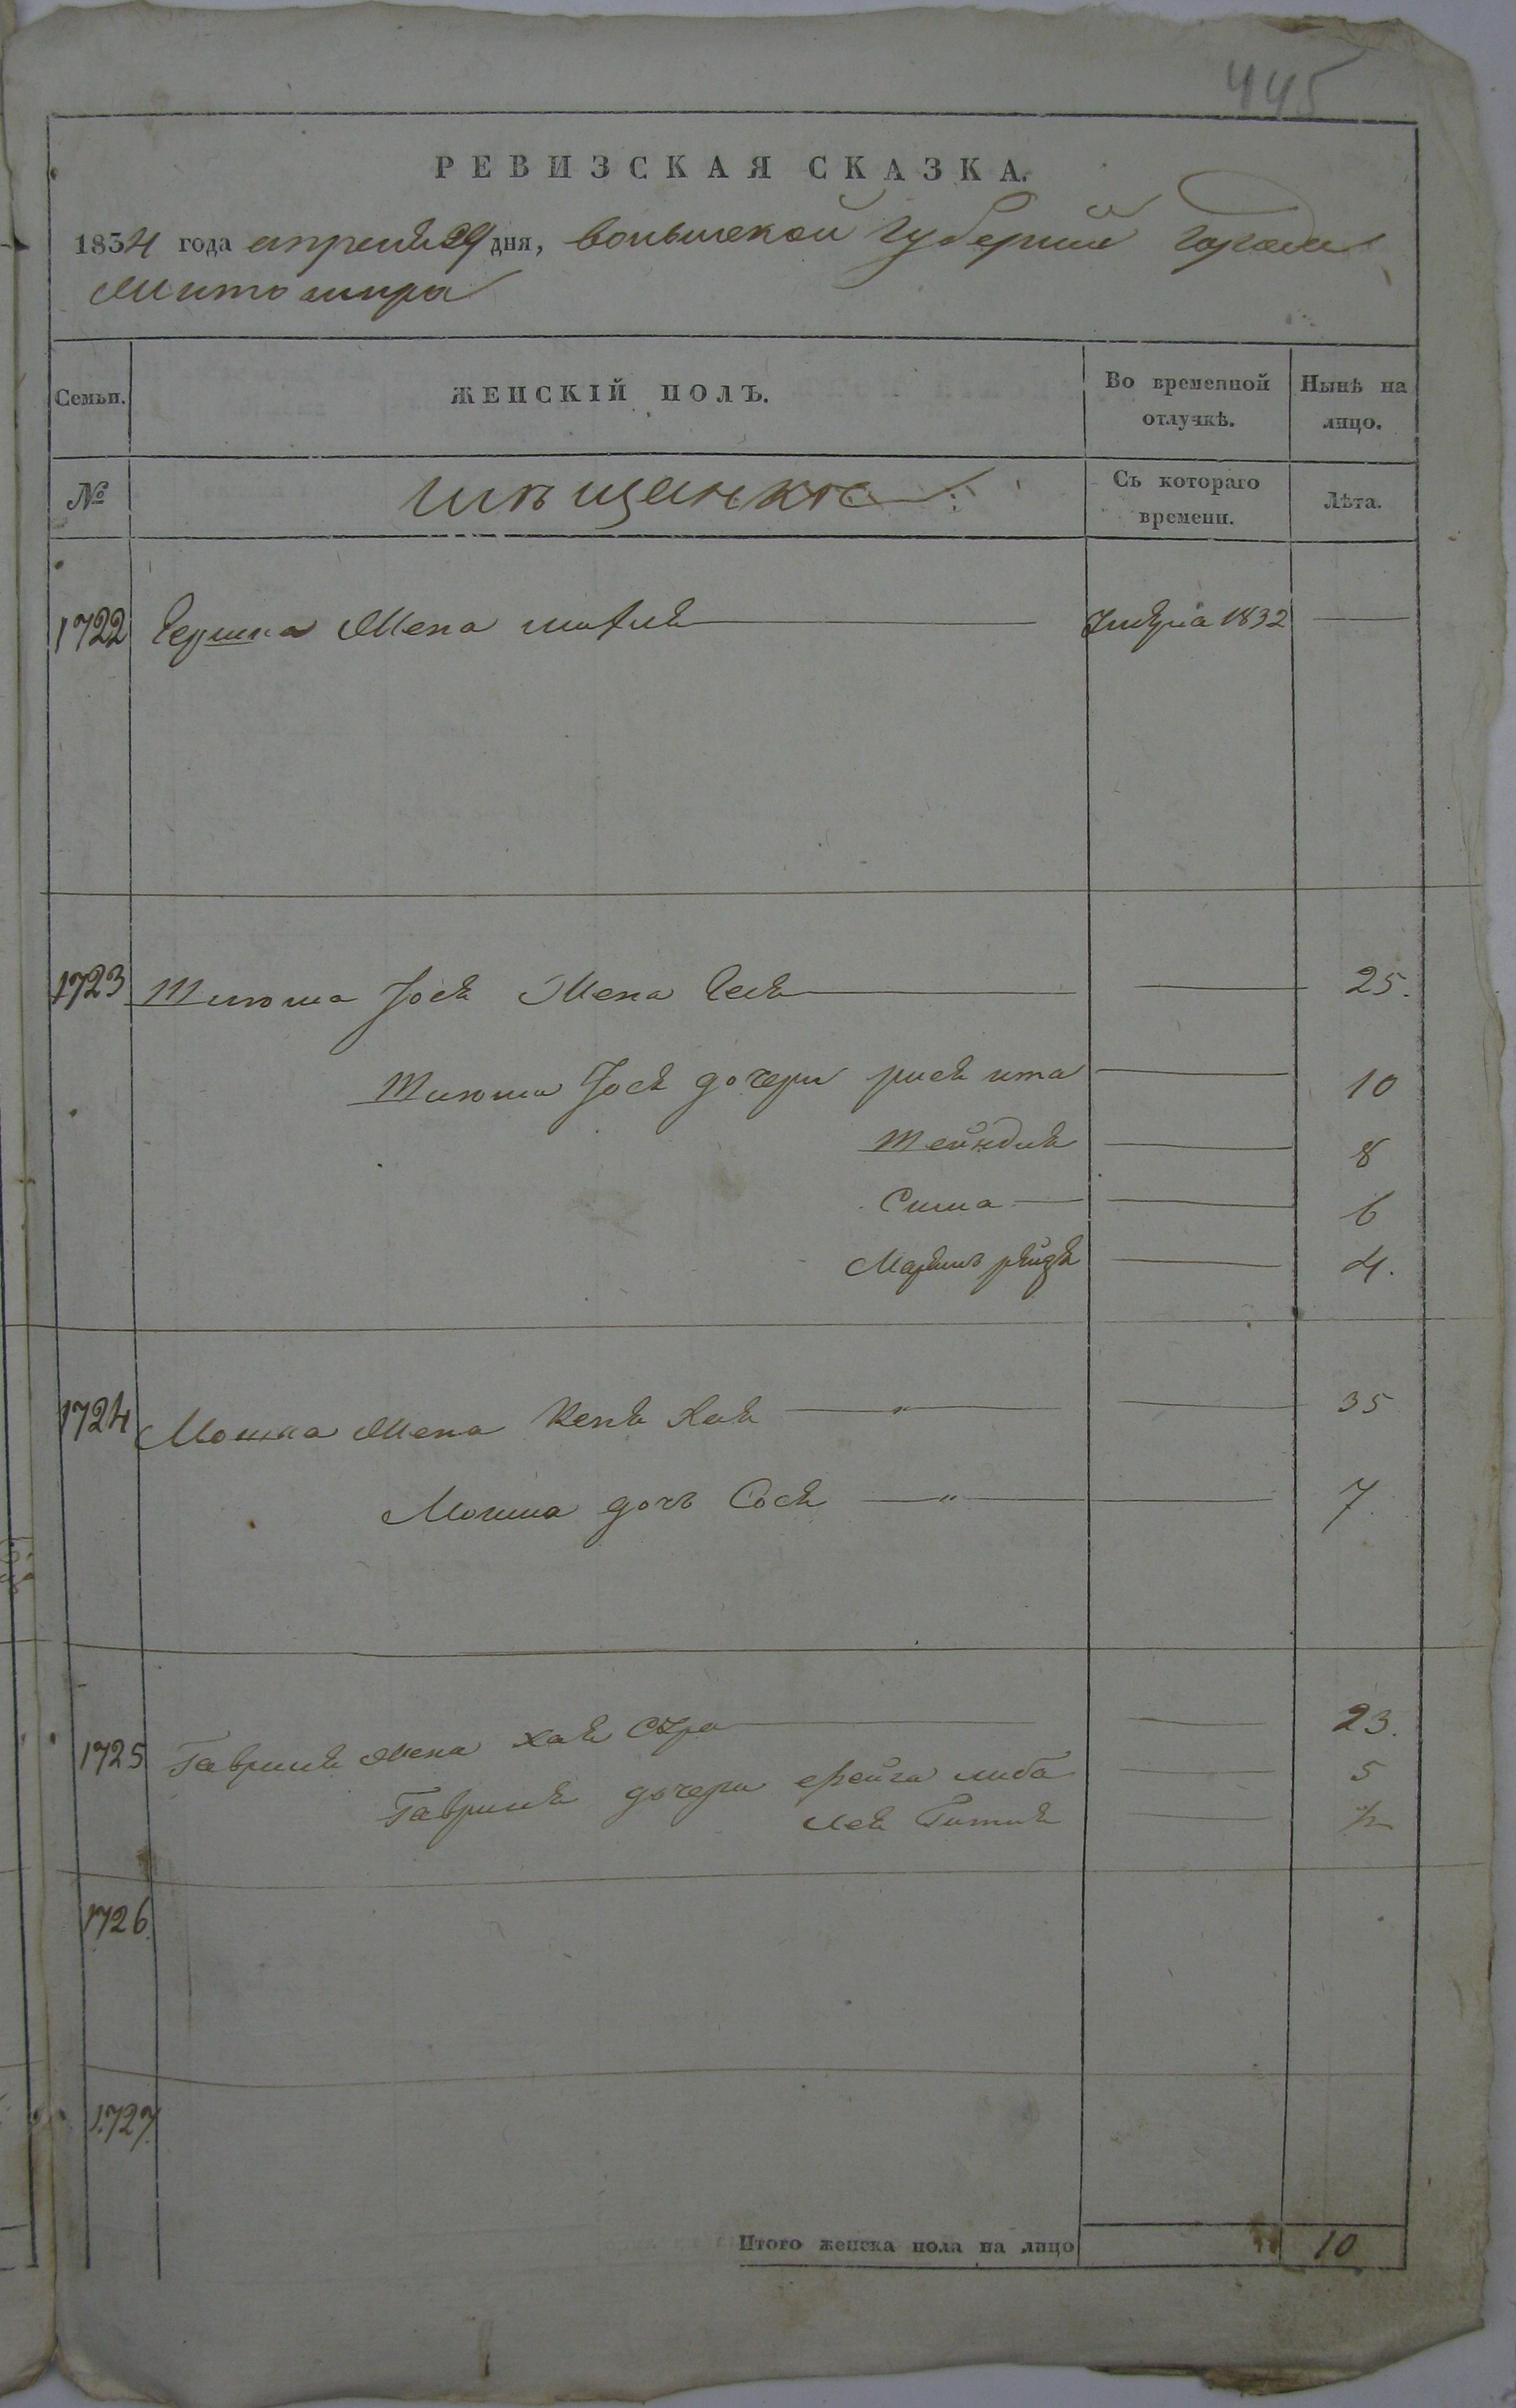 445
РЕВИЗСКАЯ СКАЗКА.
1834 года апреля 29 дня, волынской губернии города
Житомира
Семьи. ЖЕНСКІЙ ПОЛЪ. Во временной отлучкѣ. Нынѣ на лицо.
№ мѣщанъ Съ котораго времени. Лѣта.
1722 Гершка Жена 1832
1723 Жена 25.
дочери рися ита 10
Тейндля 8
Сима 6
4.
1724 Мошка Жена Кеня Хая 35
Мошка дочь Сося 7
1725 Гавриля Жена хая Сура 23.
Гавриля дочери фейга либа 5
лея Гитля ½
1726.
1727.
Итого женска пола на лицо 10